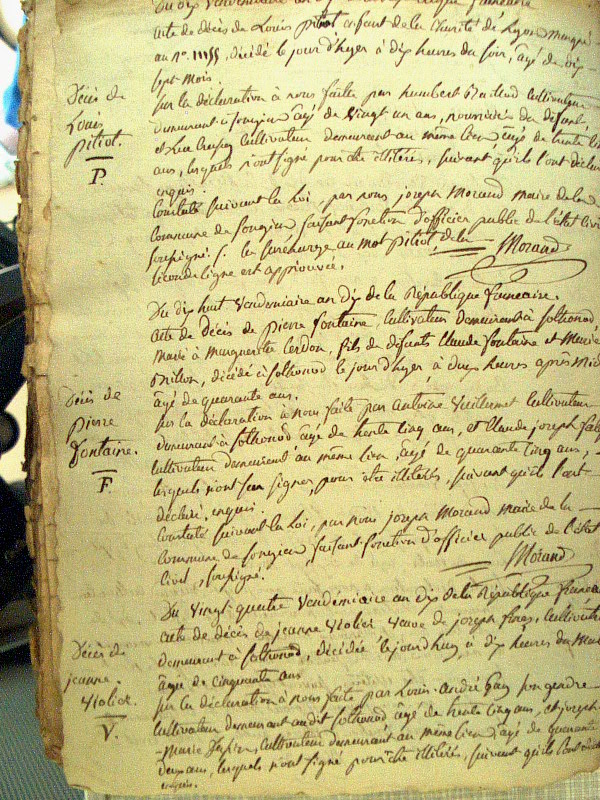 Du dix vendémiaire an dix de la République française
acte de décès de Louis pitiot enfant de la charité de Lyon marqué
au No. 11155, décédé le jour d'hyer à dix heures du soir, âgé de dix
sept mois.
Décès de
Louis
pitiot.
P.
sur la déclaration à nous faite par humbert cultivateur
demeurant à songieu âgé de vingt un ans, nourricier du défunt
et Luc cultivateur demeurant au même lieu âgé de trente
ans, lesquels n'ont signé pour être illiterés, suivant qu'ils l'ont déclaré
enquis.
Constaté suivant la Loi, par nous joseph Morand maire de la
Commune de songieu faisant fonction d'officier public de l'état civil
soussigné. la surcharge au mot pitiot de la
seconde ligne est approuvée. Morand
Du dix huit vendemiaire an dix de la République francaise.
acte de décès de pierre fontaine, cultivateur demeurant à sothonod,
marié à marguerite cerdon, fils de défunts Claude fontaine et Marie
Millon, décédé à sothonod le jour d'hyer, à deux heures après Midi
âgé de quarante ans.
Décès de
pierre
fontaine.
F.
sur la déclaration à nous faite par antoine Vuillermet cultivateur
demeurant à sothonod âgé de trente cinq ans, et Claude joseph
cultivateur demeurant au même lieu, âgé de quarante cinq ans,
lesquels n'ont su signer, pour être illiterés, suivant qu'ils l'ont
déclaré, enquis.
Constaté suivant la Loi, par nous joseph Morand maire de la
Commune de songieu, faisant fonction d'officier public de l'état
Civil, soussigné. Morand
Du vingt quatre vendémiaire an dix de la République francaise
acte de décès de jeanne violier veuve de joseph cultivateur
demeurant à sothonod, décédée le jourd'huy à dix heures du matin
âgée de cinquante ans
Décès de
jeanne.
violier.
V.
sur la déclaration à nous faite par Louis andré Gay son gendre
cultivateur demeurant audit sothonod âgé de trente cinq ans, et joseph
-Marie cultivateur demeurant au même lieu âgé de quarante
deux ans, lesquels n'ont signé pour être illiterés, suivant qu'ils l'ont déclaré
enquis.